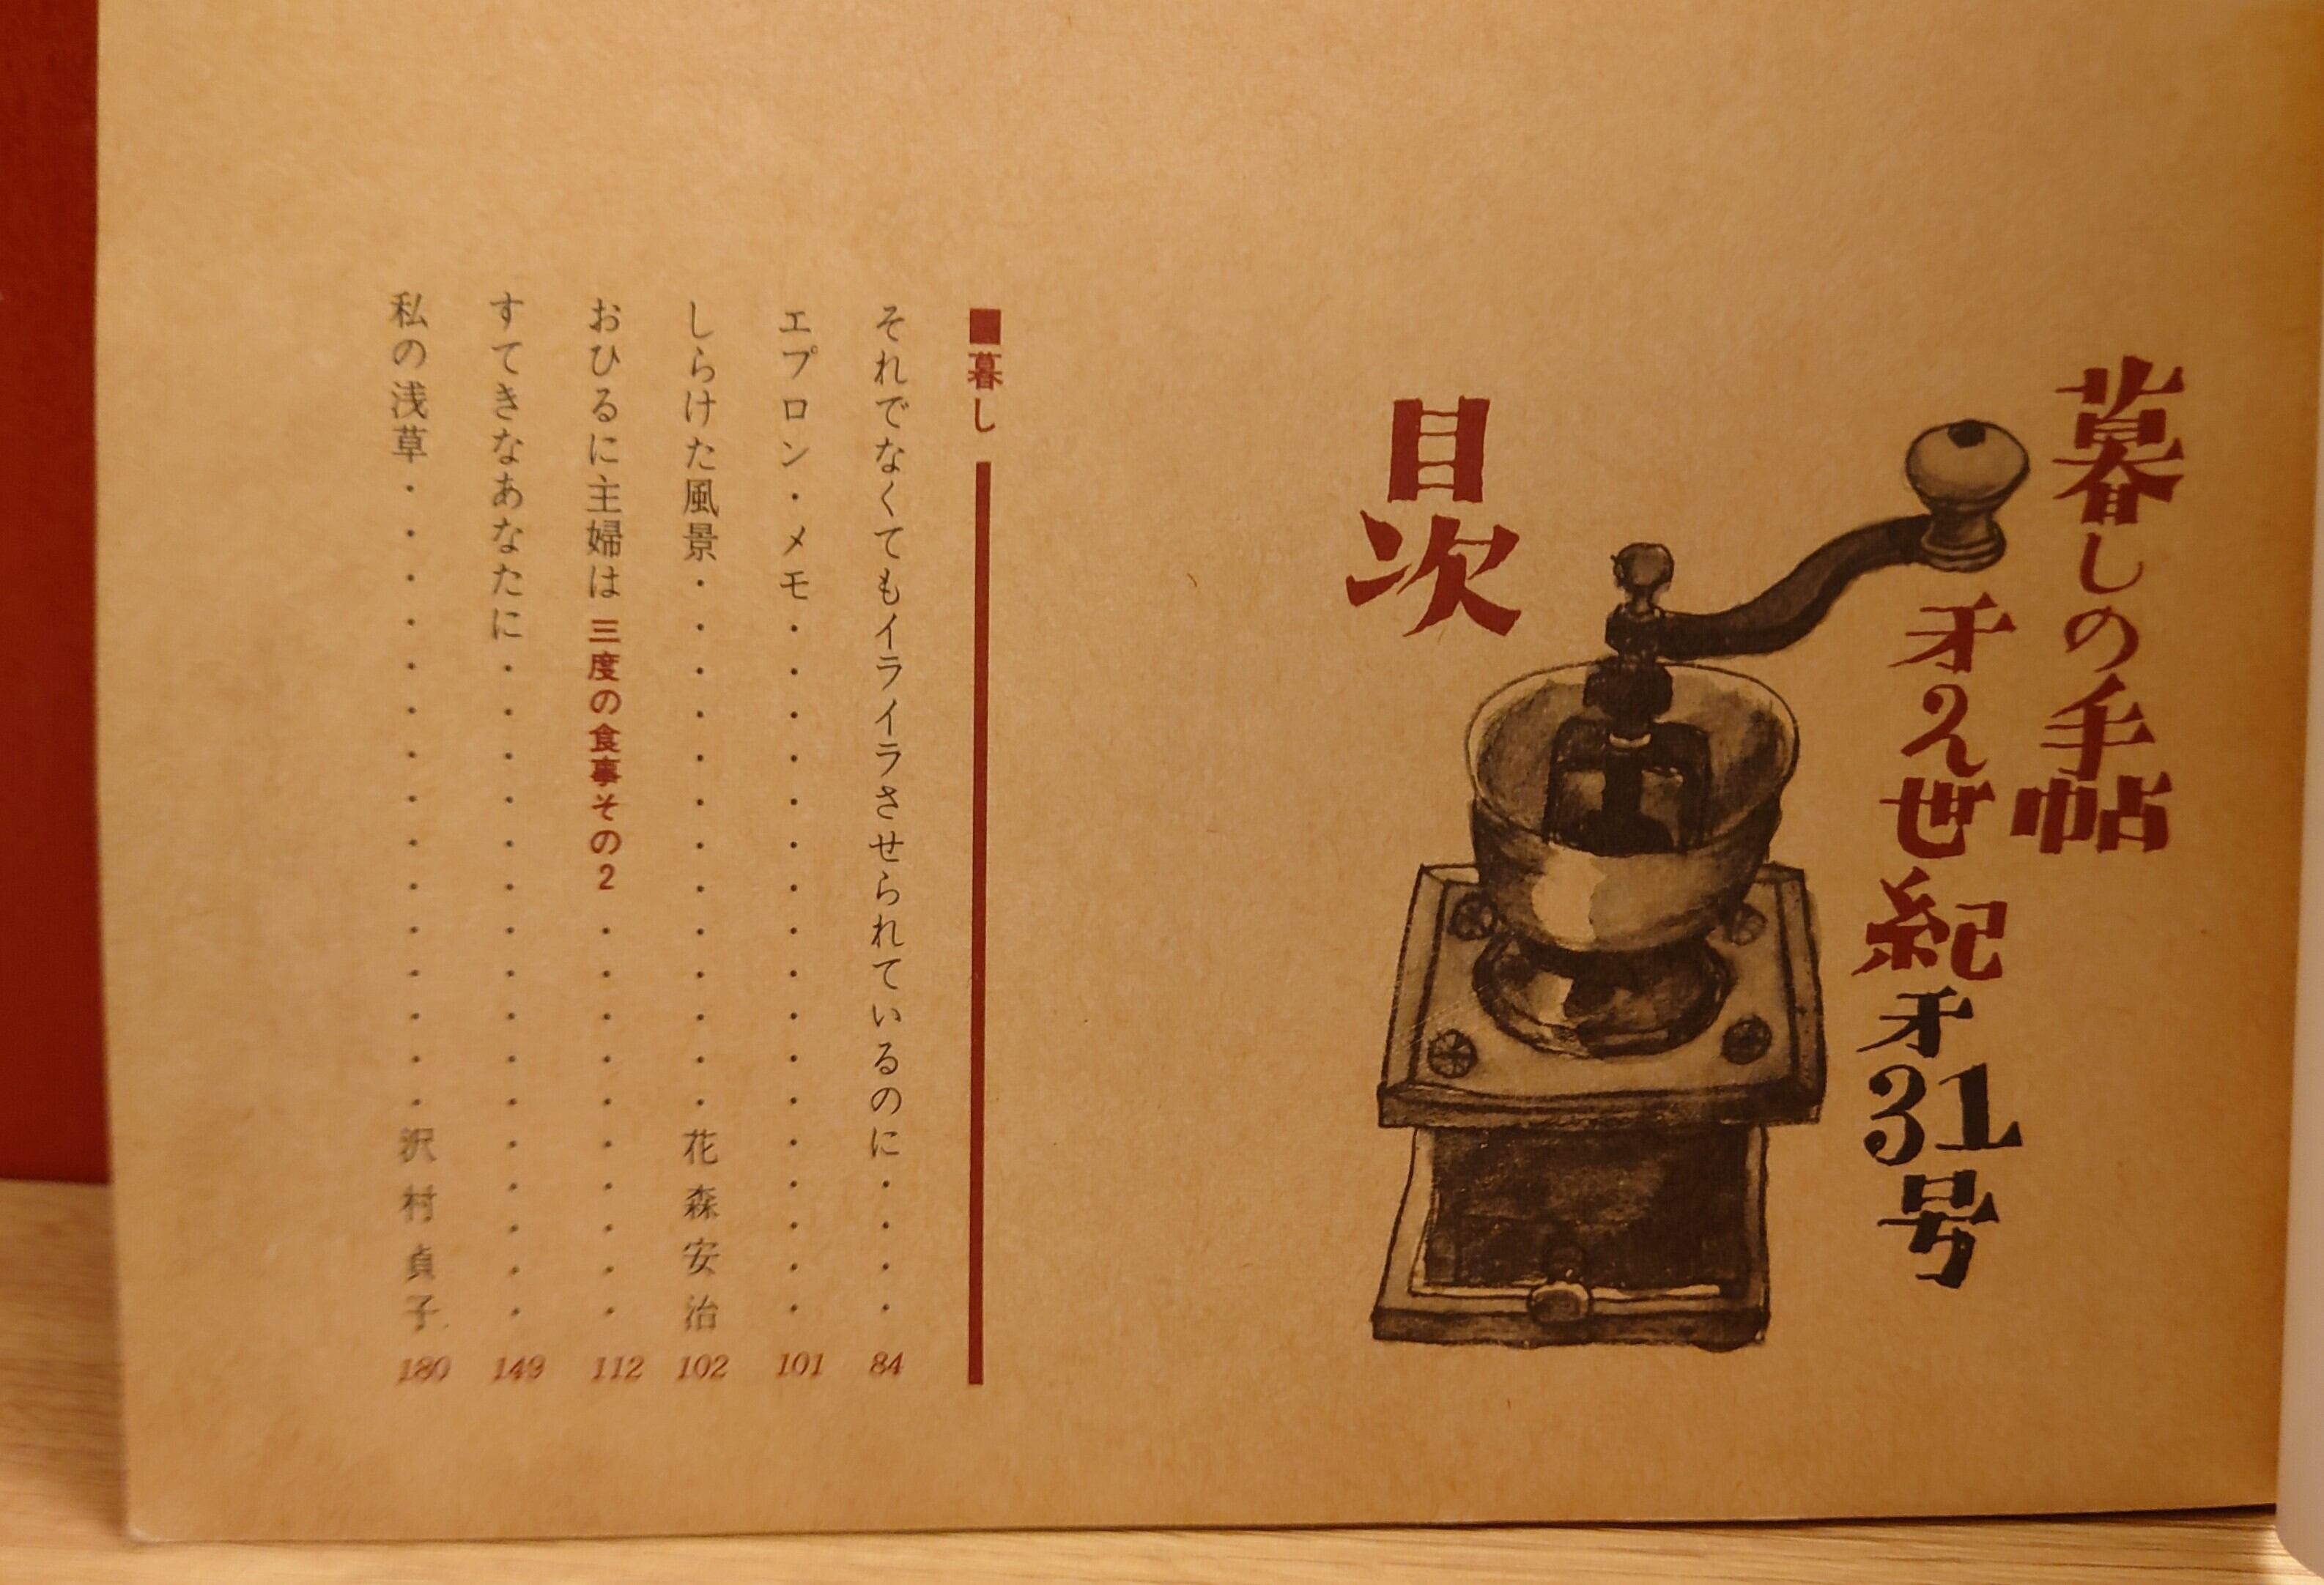 暮しの手帖
㐧2世紀㐧31号
目次
■暮し
それでなくてもイライラさせられているのに・・・・84
エプロン・メモ・・・・・・・・・・・・・・・・・101
しらけた風景・・・・・・・・・・・・・花森安治102
おひるに主婦は 三度の食事その2・・・・・・・・・・112
すてきなあなたに・・・・・・・・・・・・・・・・149
私の浅草・・・・・・・・・・・・・・・沢村貞子180